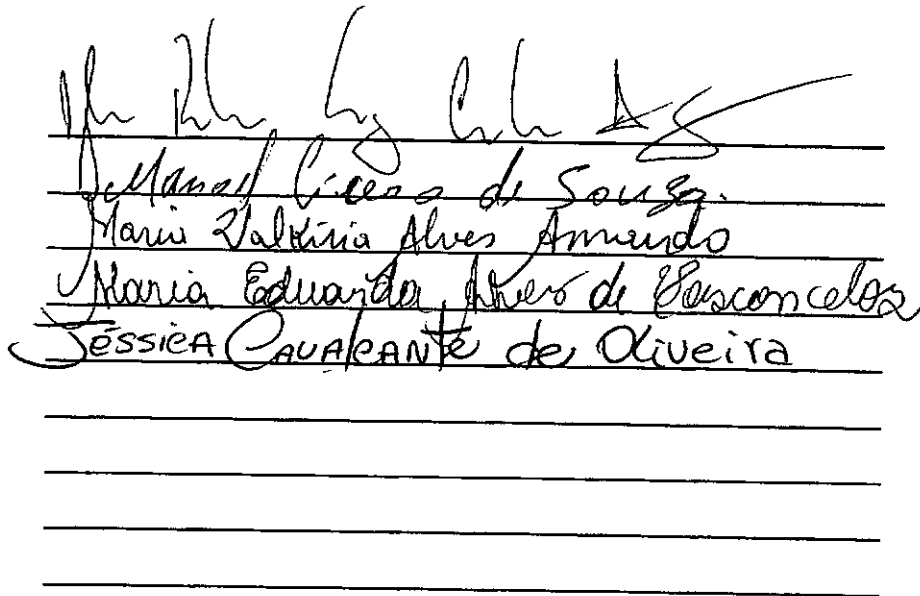 Manoel Cicero de Souza.
Maria Valkiria Alves Amando
Maria Eduarda Alves de Vasconcelos
JéssicA CAVALCANTE de Oliveira